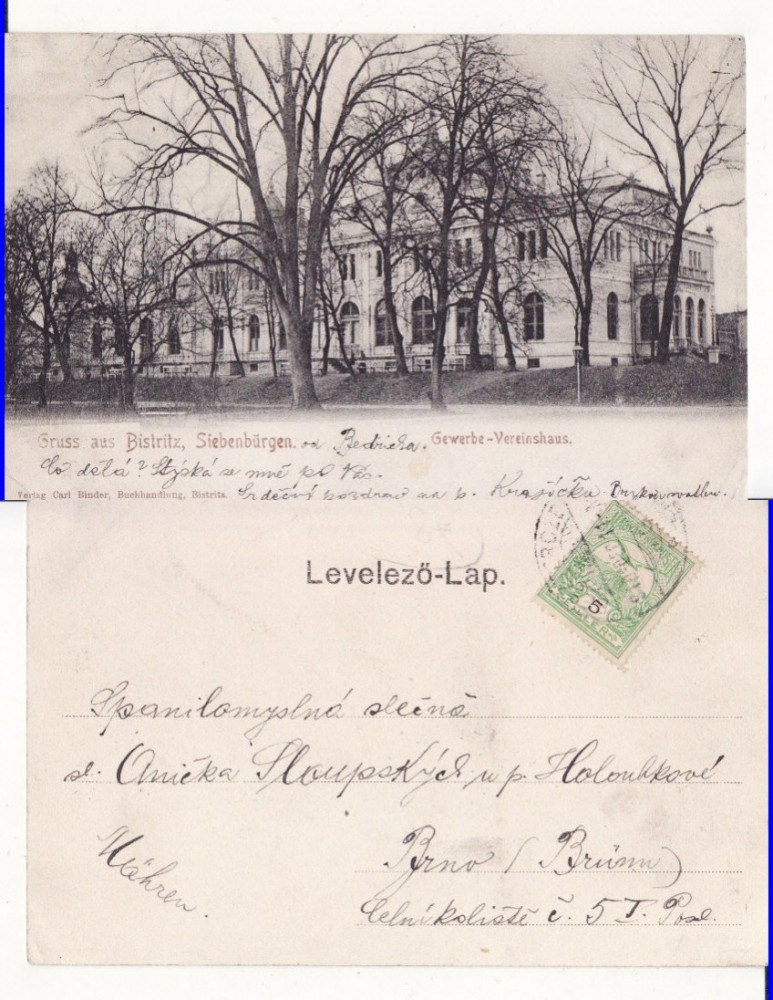 Gruss aus Bistritz, Siebenbürgen. od Bedřicha. Gewerbe-Vereinshaus.
Co dělá? Stýská se mně po Vás.
Verlag Carl Binder, Buchhandlung, Bistritz. Srdečný pozdrav na p. Krajíčka
Levelező-Lap.
5
Spanilomyslná slečna
sl. Anička Sloupských u p. Holoubkové
Mähren.
Brno (Brünn)
Celníkoliště č. 5 I. Posch.